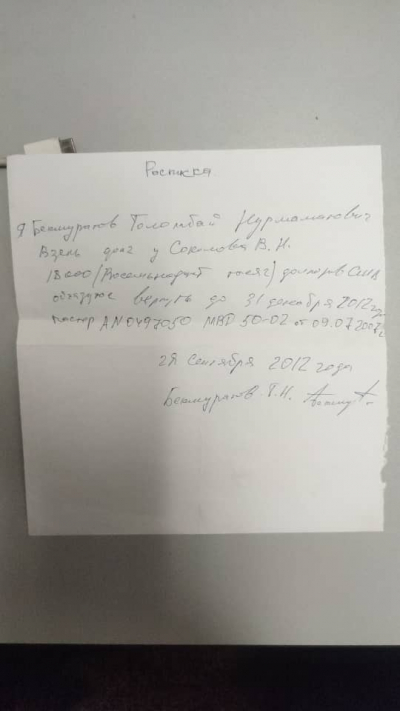 Расписка
Я Бекмуратов Толомбай Нурмаматович
Взель долг у Соколова В.Н.
18000 (Восемьнадцат тысяч) долларов США
обязуюс вернуть до 31 декабря 2012
паспорт AN0497050 МВД 50-02 от 09.07.
28 Сентября 2012 года
Бекмуратов Т.Н.